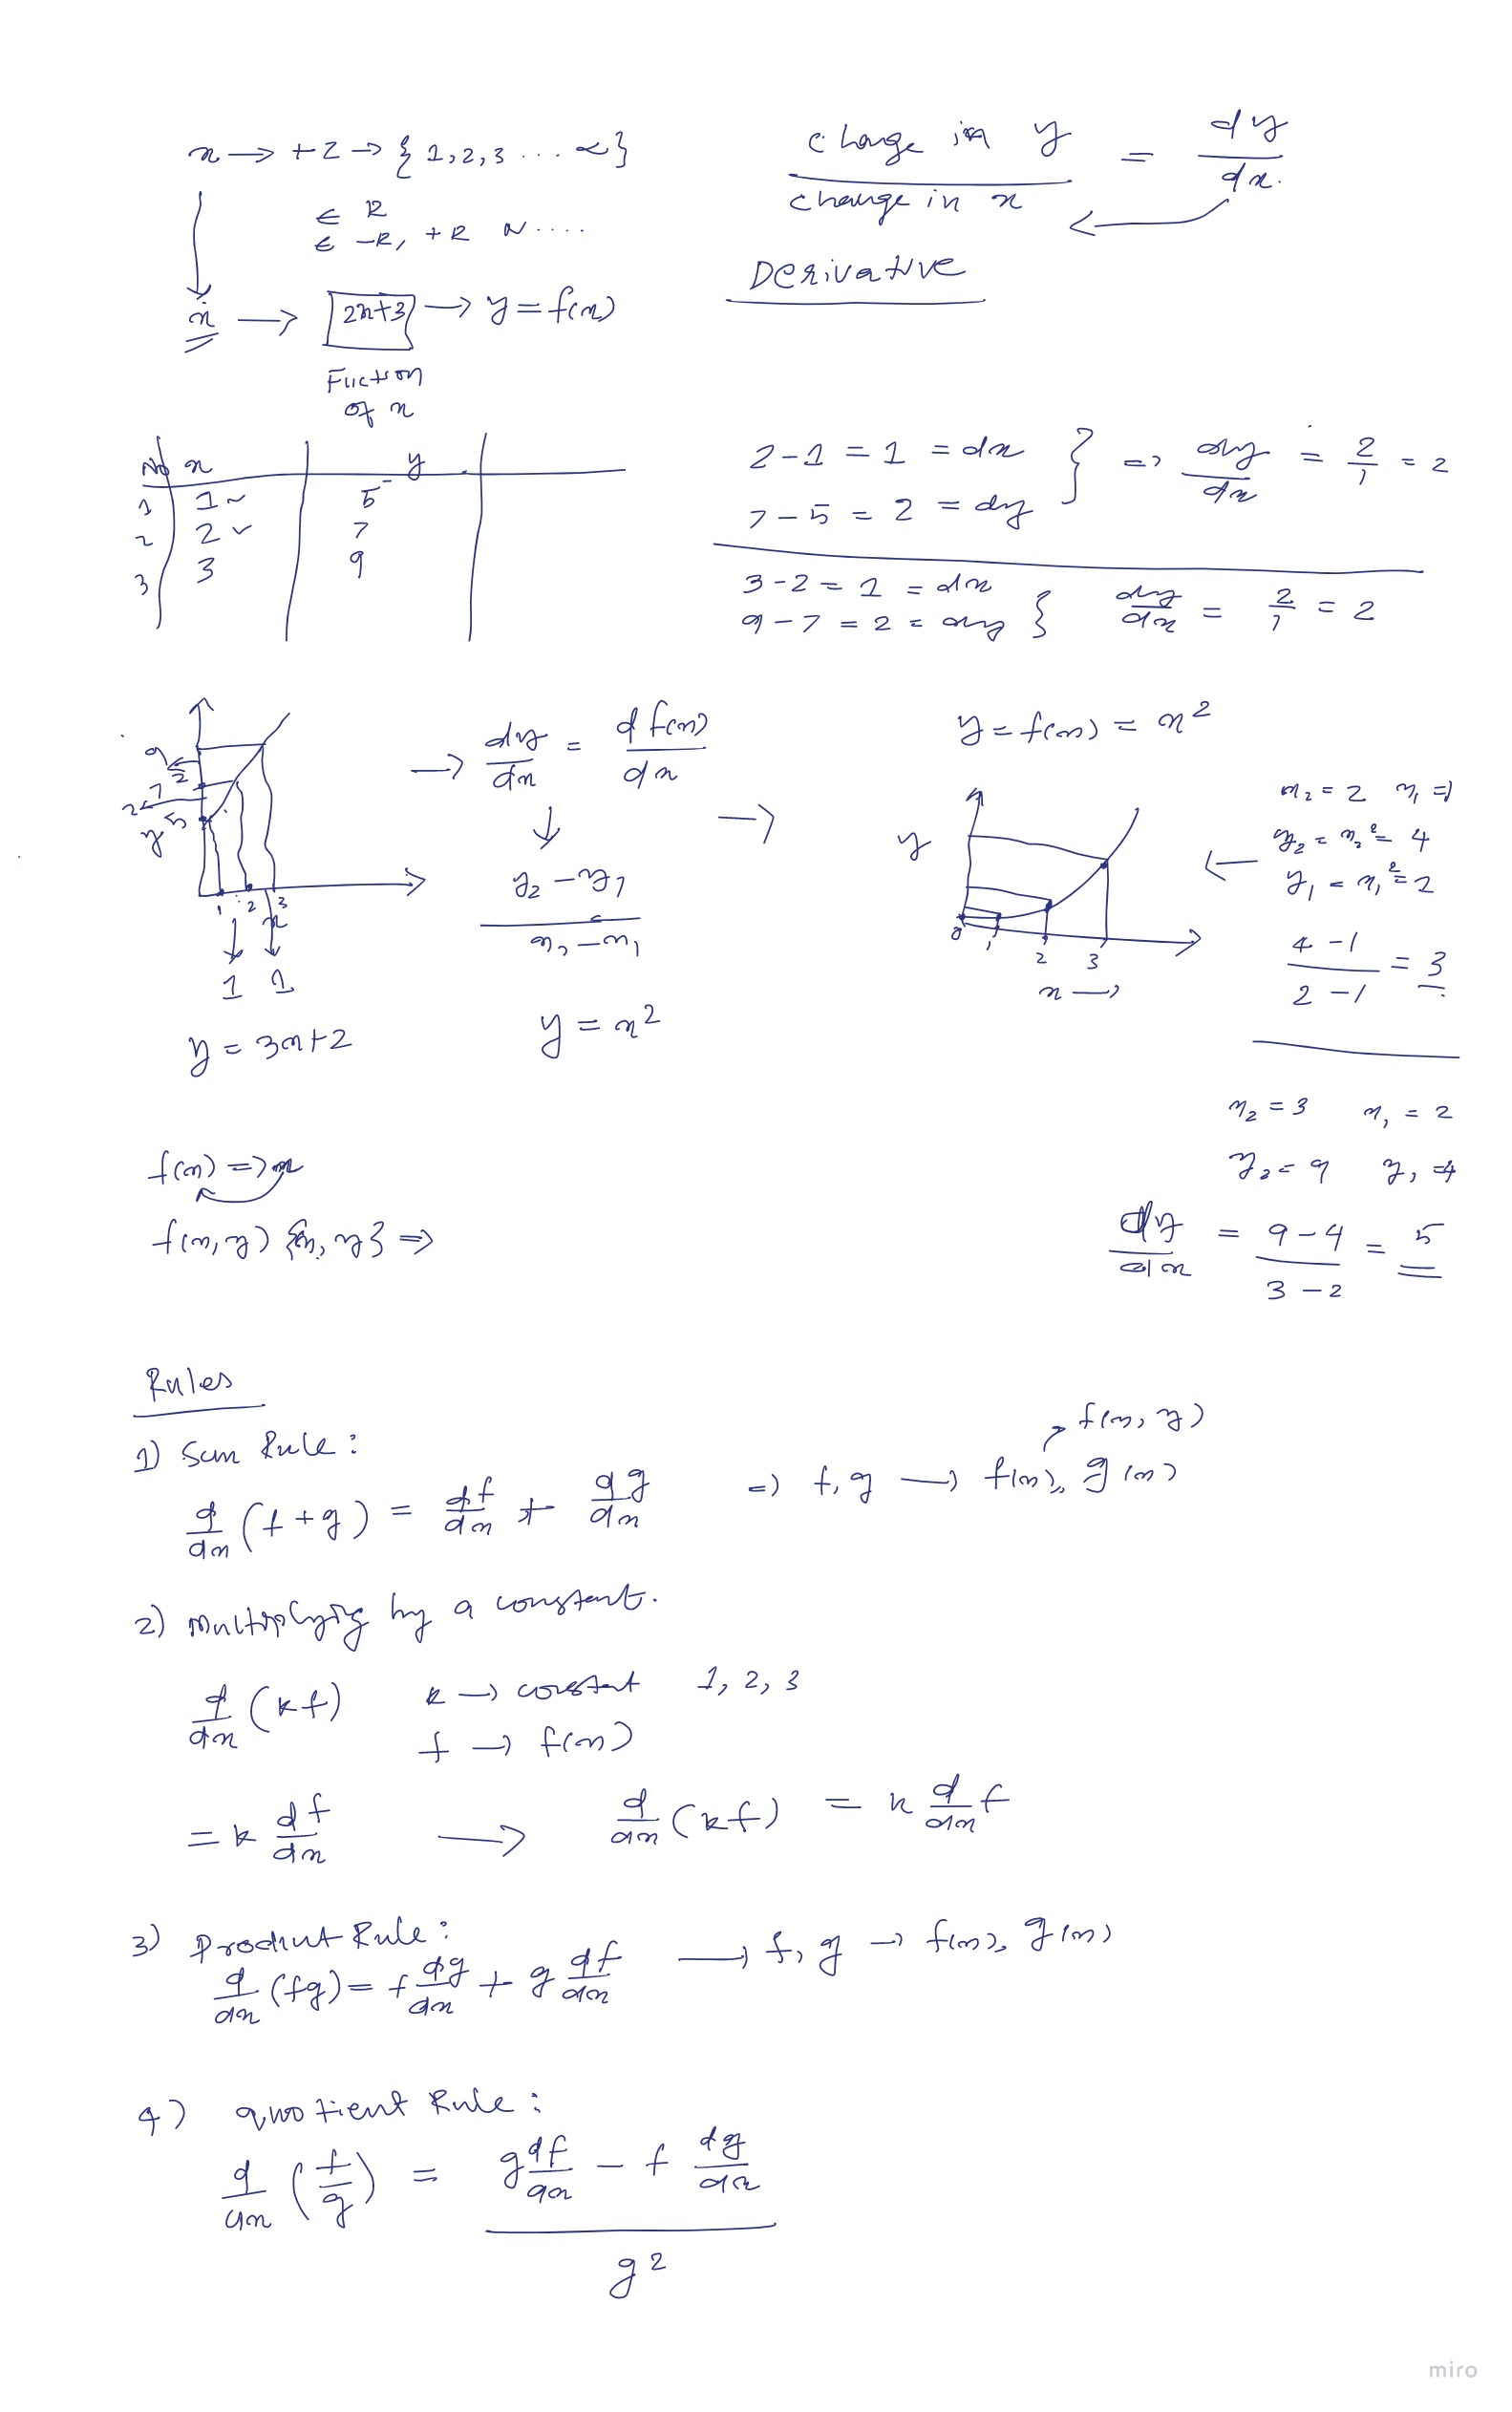 x → +2 → {1, 2, 3 .... ∝}
∈ R
∈ -R, +R N ....
x → 2x+3 → y = f(x)
Fuction
of x
change in y / change in x = dy/dx.
Derivative
No x y
1 1 5
2 2 7
3 3 9
2 - 1 = 1 = dx
7 - 5 = 2 = dy } => dy/dx = 2/1 = 2
3 - 2 = 1 = dx
9 - 7 = 2 = dy } dy/dx = 2/1 = 2
9
2
7
2
5
y
1 2 3
x
1 1
y = 3x+2
→ dy/dx = d f(x)/dx
↓
y₂ - y₁ / x₂ - x₁
→
y = x²
y = f(x) = x²
y
0 1 2 3
x →
x₂ = 2 x₁ = 1
y₂ = x₂² = 4
y₁ = x₁² = 2
4 - 1 / 2 - 1 = 3
x₂ = 3 x₁ = 2
y₂ = 9 y₁ = 4
dy/dx = 9 - 4 / 3 - 2 = 5
f(x) => x
f(x, y) {x, y} =>
Rules
1) Sum Rule:
d/dx (f + g) = df/dx + dg/dx => f, g → f(x), g(x)
f(x, y)
2) Multiplying by a constant.
d/dx (kf) k → constant 1, 2, 3
f → f(x)
= k df/dx → d/dx (kf) = k d/dx f
3) Product Rule:
d/dx (fg) = f dg/dx + g df/dx → f, g → f(x), g(x)
4) quotient Rule:
d/dx (f/g) = g df/dx - f dg/dx / g²
miro